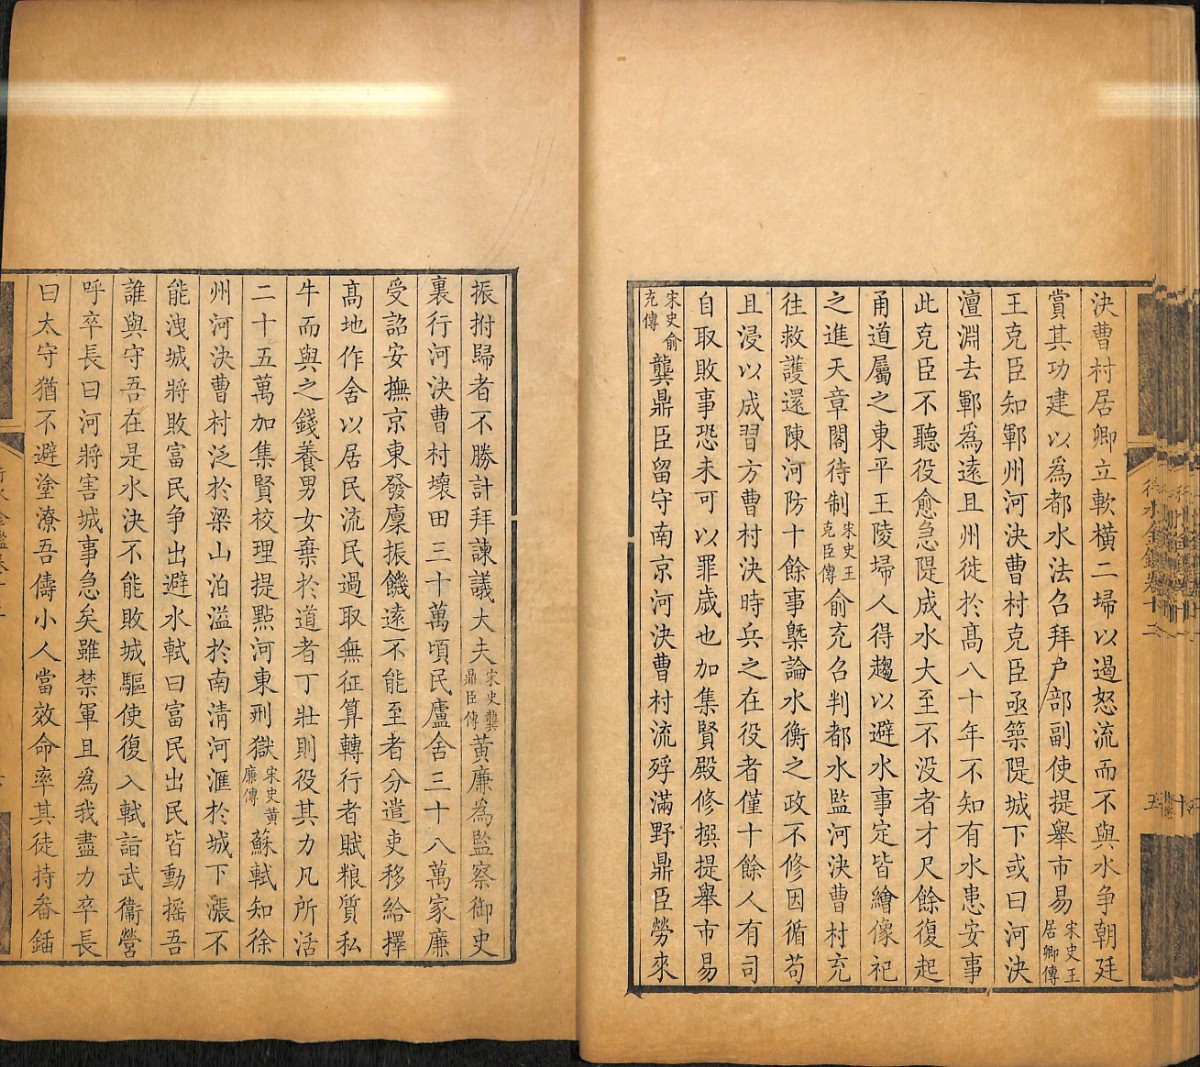 決曹村居卿立軟橫二埽以遏怒流而不與水争朝廷
賞其功建以爲都水法召拜户部副使提舉市易宋史王居卿傳
王克臣知鄆州河決曹村克臣亟築隄城下或曰河決
澶淵去鄆爲遠且州徙於高八十年不知有水患安事
此克臣不聽役愈急隄成水大至不没者才尺餘復起
甬道屬之東平王陵埽人得趨以避水事定皆繪像祀
之進天章閣待制宋史王克臣傳俞充召判都水監河決曹村充
往救護還陳河防十餘事槩論水衡之政不修因循苟
且浸以成習方曹村決時兵之在役者僅十餘人有司
自取敗事恐未可以罪歲也加集賢殿修撰提舉市易
宋史俞充傳龔鼎臣留守南京河決曹村流殍滿野鼎臣勞來
振拊歸者不勝計拜諫議大夫宋史龔鼎臣傳黃廉爲監察御史
裏行河決曹村壞田三十萬頃民廬舍三十八萬家廉
受詔安撫京東發廩振饑遠不能至者分遣吏移給擇
高地作舍以居民流民過取無征算轉行者賦粮質私
牛而與之錢養男女棄於道者丁壯則役其力凡所活
二十五萬加集賢校理提㸃河東刑獄宋史黃廉傳蘇軾知徐
州河決曹村泛於梁山泊溢於南清河滙於城下漲不
能洩城將敗富民争出避水軾曰富民出民皆動摇吾
誰與守吾在是水決不能敗城驅使復入軾詣武衞營
呼卒長曰河將害城事急矣雖禁軍且爲我盡力卒長
曰太守猶不避塗潦吾儔小人當效命率其徒持畚鍤
行水金鑑卷十二